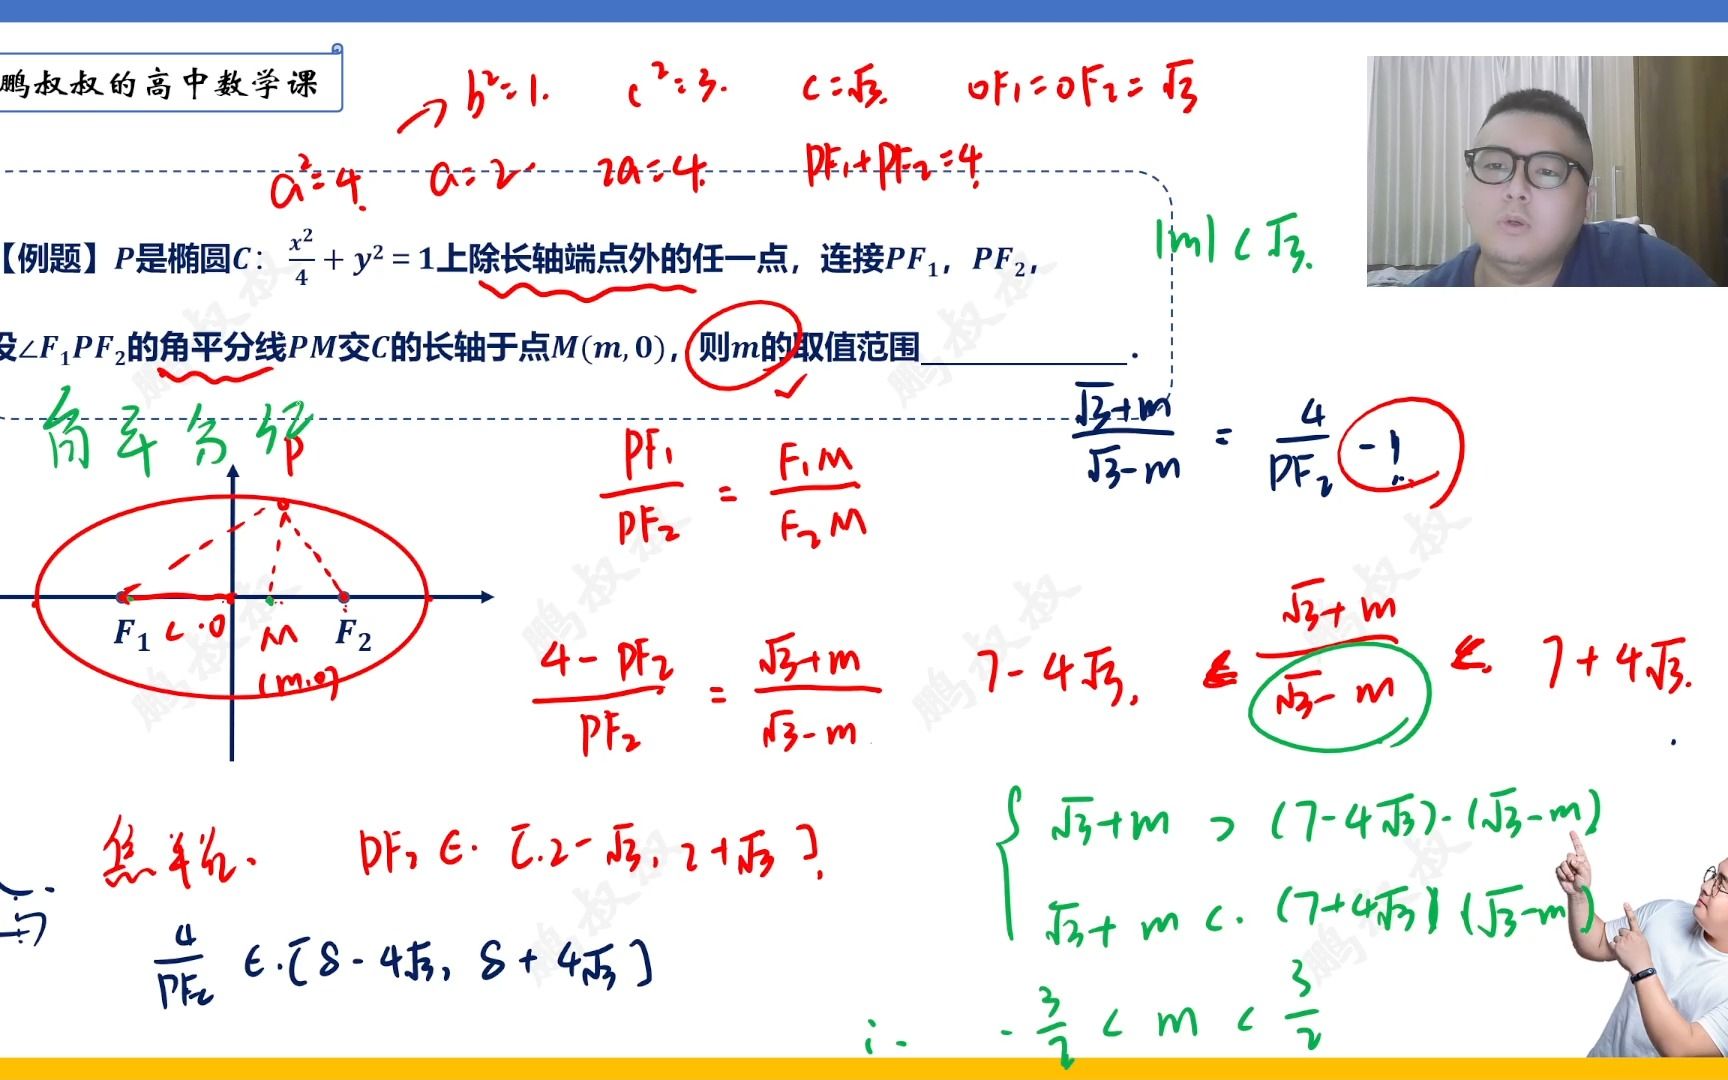 鹏叔叔的高中数学课
b²=1. c²=3. c=√3. OF₁=OF₂=√3
a²=4. a=2 2a=4. PF₁+PF₂=4.
|m|<√3.
【例题】P是椭圆C：x²/4 + y² = 1上除长轴端点外的任一点，连接PF₁，PF₂，
设∠F₁PF₂的角平分线PM交C的长轴于点M(m, 0)，则m的取值范围______________.
角平分线
PF₁/PF₂ = F₁M/F₂M
(√3+m)/(√3-m) = 4/PF₂ -1
P
F₁ c O M F₂
(m,0)
(4-PF₂)/PF₂ = (√3+m)/(√3-m)
7-4√3, < (√3+m)/(√3-m) < 7+4√3.
焦半径. PF₂ ∈ [2-√3, 2+√3]
4/PF₂ ∈ [8-4√3, 8+4√3]
{ √3+m > (7-4√3)·(√3-m)
√3+m < (7+4√3)(√3-m)
∴ -3/2 < m < 3/2
鹏叔叔